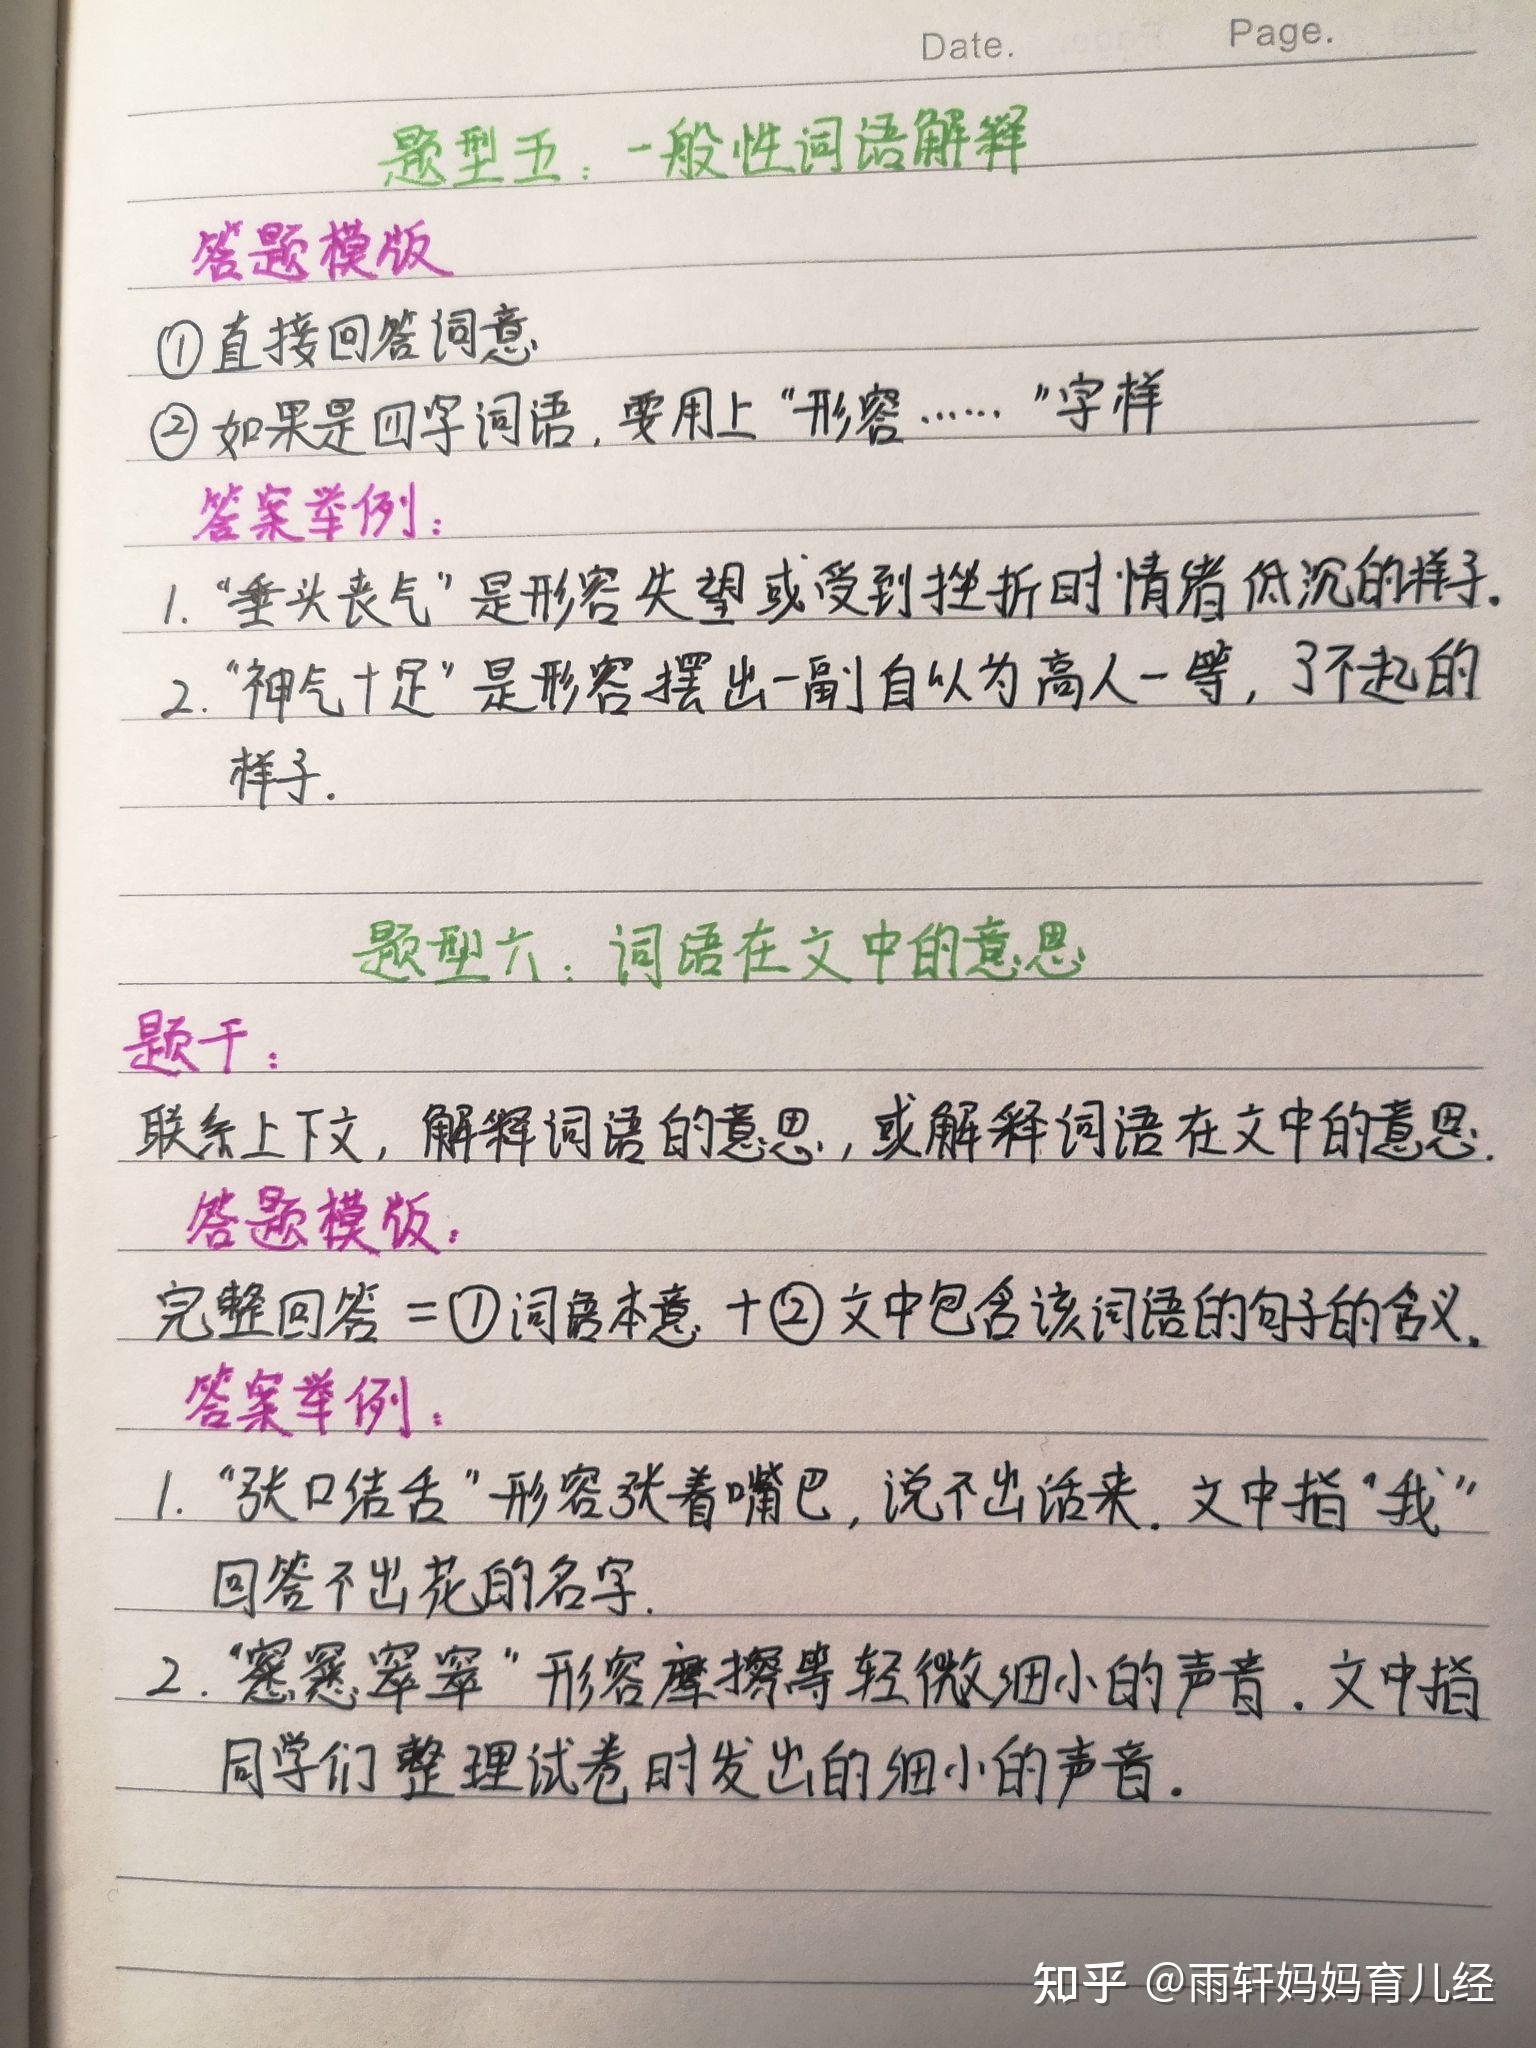 Date.    Page.
题型五：一般性词语解释
答题模版
①直接回答词意
②如果是四字词语，要用上“形容……”字样
答案举例：
1. “垂头丧气”是形容失望或受到挫折时情绪低沉的样子.
2. “神气十足”是形容摆出一副自以为高人一等，了不起的
样子.
题型六：词语在文中的意思
题干：
联系上下文，解释词语的意思，或解释词语在文中的意思.
答题模版：
完整回答=①词语本意+②文中包含该词语的句子的含义.
答案举例：
1. “张口结舌”形容张着嘴巴，说不出话来. 文中指“我”
回答不出花的名字.
2. “窸窸窣窣”形容摩擦等轻微细小的声音. 文中指
同学们整理试卷时发出的细小的声音.
知乎 @雨轩妈妈育儿经